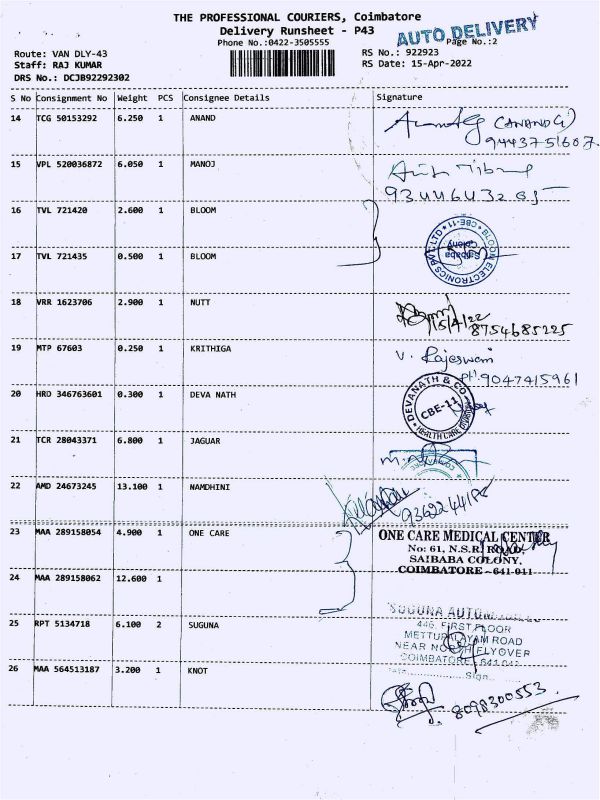 THE PROFESSIONAL COURIERS, Coimbatore
Delivery Runsheet - P43
AUTO DELIVERY
Phone No.:0422-3505555
Page No.:2
Route: VAN DLY-43
RS No.: 922923
Staff: RAJ KUMAR
RS Date: 15-Apr-2022
DRS No.: DCJB92292302
S No Consignment No Weight PCS Consignee Details Signature
14 TCG 50153292 6.250 1 ANAND
(ANAND G)
9443751607
15 VPL 520036872 6.050 1 MANOJ
16 TVL 721420 2.600 1 BLOOM
BLOOM ELECTRONICS PVT LTD
CBE-11
Saibaba
Colony
17 TVL 721435 0.500 1 BLOOM
18 VRR 1623706 2.900 1 NUTT
15/4/22
8754685225
19 MTP 67603 0.250 1 KRITHIGA
V. Rajeswari
PH: 9047415961
20 HRD 346763601 0.300 1 DEVA NATH
DEVANATH & CO
CBE-11
HEALTH CARE
21 TCR 28043371 6.800 1 JAGUAR
22 AMD 24673245 13.100 1 NAMDHINI
23 MAA 289158054 4.900 1 ONE CARE
ONE CARE MEDICAL CENTER
No: 61, N.S.R. ROAD,
SAIBABA COLONY,
COIMBATORE - 641 011
24 MAA 289158062 12.600 1
25 RPT 5134718 6.100 2 SUGUNA
SUGUNA
446, FIRST FLOOR
METTUPALAYAM ROAD
NEAR NORTH FLYOVER
COIMBATORE
Sign
26 MAA 564513187 3.200 1 KNOT
8098300553